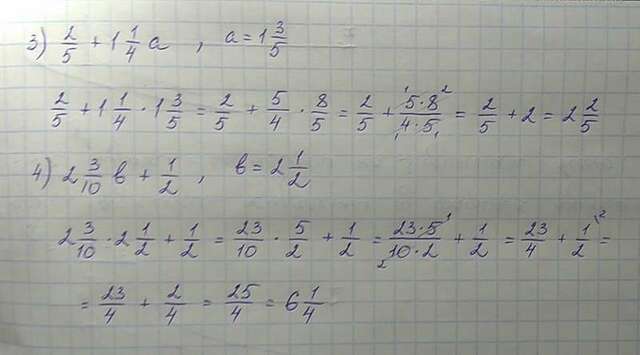 3) 2/5 + 1 1/4 a , a = 1 3/5
2/5 + 1 1/4 · 1 3/5 = 2/5 + 5/4 · 8/5 = 2/5 + 5·8/4·5 = 2/5 + 2 = 2 2/5
4) 2 3/10 в + 1/2 , в = 2 1/2
2 3/10 · 2 1/2 + 1/2 = 23/10 · 5/2 + 1/2 = 23·5/10·2 + 1/2 = 23/4 + 1/2 =
= 23/4 + 2/4 = 25/4 = 6 1/4